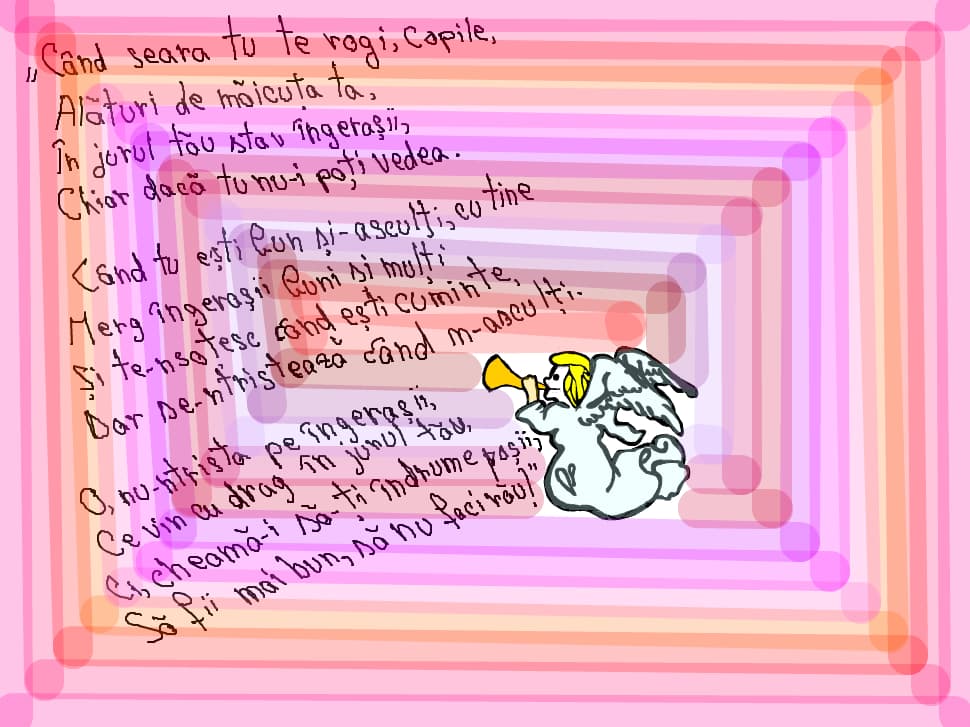 „Când seara tu te rogi, copile,
Alături de măicuta ta,
În jurul tău stau îngerașii,
Chiar dacă tu nu-i poți vedea.
Când tu ești bun și-asculți, cu tine
Merg îngerașii buni si mulți
Și te-nsoțesc când ești cuminte,
Dar se-ntristează când n-asculți.
O, nu-ntrista pe îngerașii,
Ce vin cu drag în jurul tău,
Ci, cheamă-i să-ți îndrume pașii,
Să fii mai bun, să nu faci rău!"